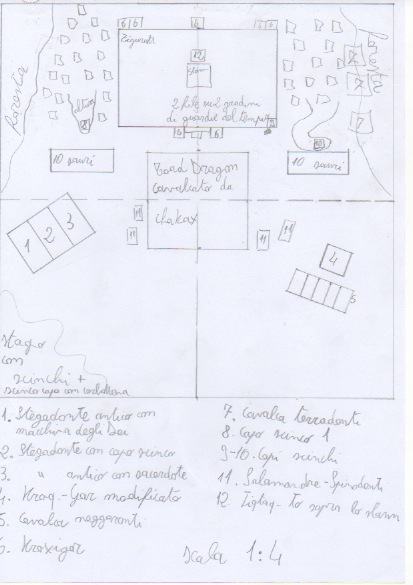 6 6
4
6 6
Zigurat
12
slann
2 file sui gradini
di guardie del tempio
4 6
Foresta
7
7
7
10 sauri
10 sauri
Toad Dragon
cavalcato da
chakax
11
11
11
11
1 2 3
4
5
Stagno
con
scinchi +
scinco capo con
1. Stegadonte antico con
macchina degli Dei
2. Stegadonte con capo scinco
3. " antico con sacerdote
4. Kroq-Gar modificato
5. Cavalca naggaronti
6. Kroxigor
7. Cavalca terradonti
8. Capo scinco 1
9-10. Capi scinchi
11. Salamandre - Spinodonti
12. Tiktaq-To sopra lo slann
scala 1:4